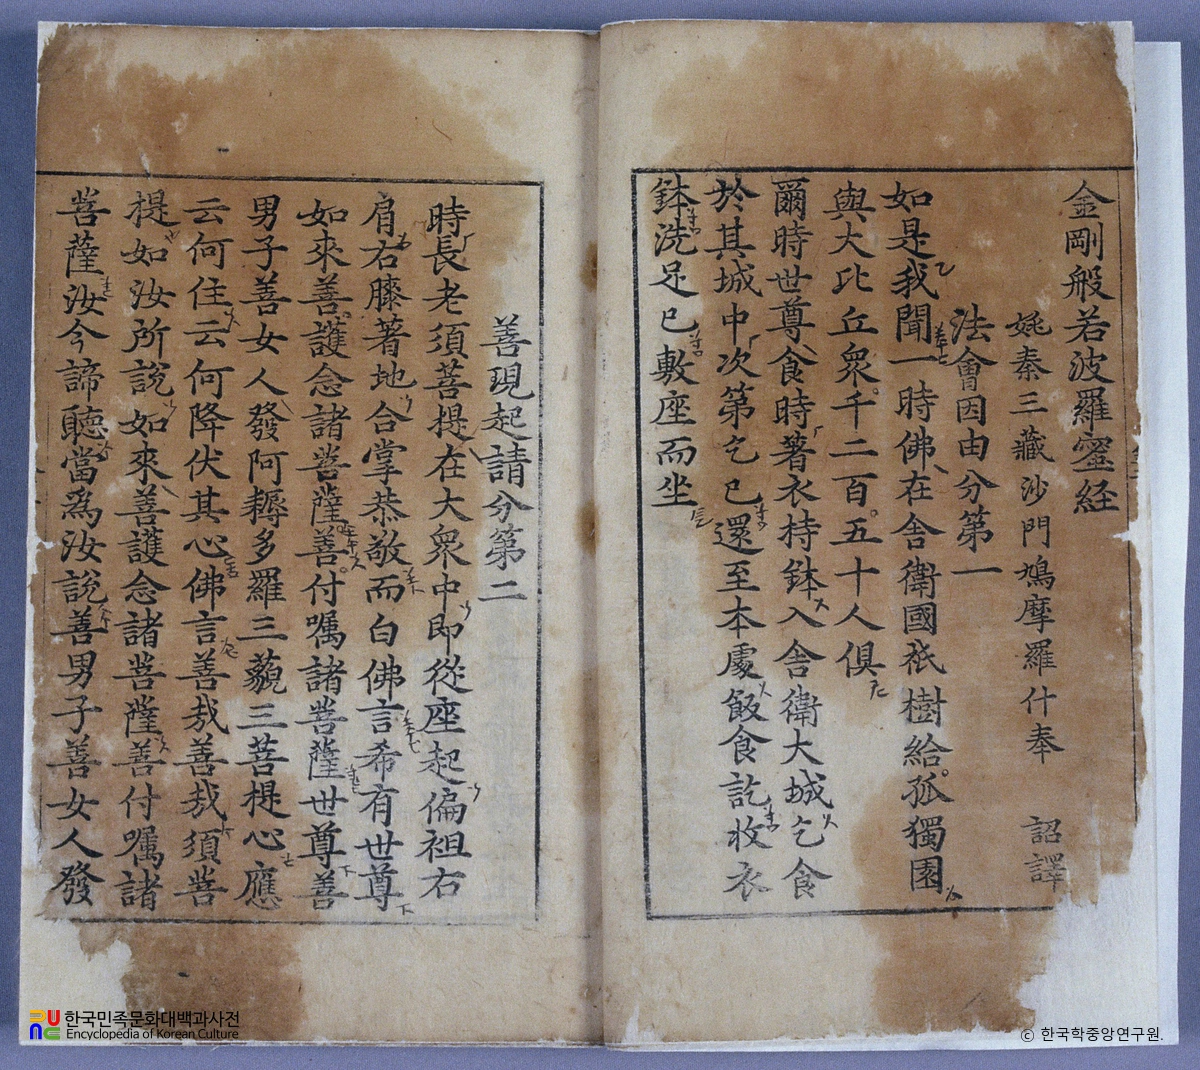 金剛般若波羅蜜経
姚秦三藏沙門鳩摩羅什奉 詔譯
法會因由分第一
如是我聞一時佛在舍衛國祇樹給孤獨園
與大比丘衆千二百五十人俱
爾時世尊食時著衣持鉢入舍衛大城乞食
於其城中次第乞已還至本處飯食訖收衣
鉢洗足已敷座而坐
善現起請分第二
時長老須菩提在大衆中即從座起偏袒右
肩右膝著地合掌恭敬而白佛言希有世尊
如來善護念諸菩薩善付嘱諸菩薩世尊善
男子善女人發阿耨多羅三藐三菩提心應
云何住云何降伏其心佛言善㢤善㢤須菩
提如汝所說如來善護念諸菩薩善付嘱諸
菩薩汝今諦聽當爲汝說善男子善女人發
한국민족문화대백과사전
Encyclopedia of Korean Culture
ⓒ 한국학중앙연구원.